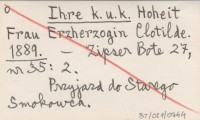 Ihre k.u.k. Hoheit
Frau Erzherzogin Clotilde.
1889. - Zipser Bote 27,
nr 35: 2.
Przyjazd do Starego
Smokowca.